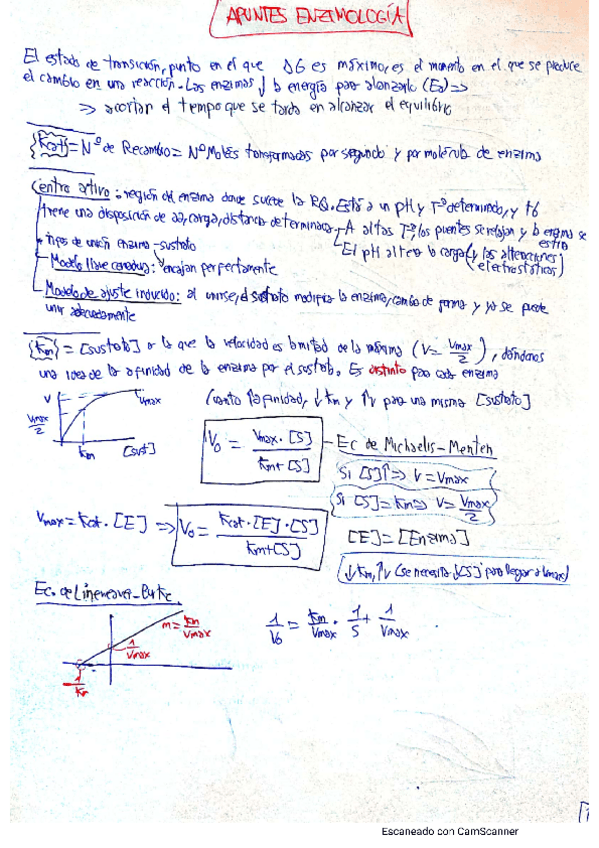 APUNTES ENZIMOLOGÍA
El estado de transición, punto en el que ΔG es máximo, es el momento en el que se produce
el cambio en una reacción. Las enzimas ↓ la energía para alcanzarlo (Ea) =>
=> acortar el tiempo que se tarda en alcanzar el equilibrio
{Kcat} = Nº de Recambio = Nº Moles transformados por segundo y por molécula de enzima
Centro activo: región del enzima donde sucede la RQ. Está a un pH y Tª determinado, y
tiene una disposición de aa, carga, distancia determinada - A altas Tª, los puentes se relajan y la enzima se
estira
• tipos de unión enzima-sustrato
El pH altera la carga (y las alteraciones
electrostáticas)
- Modelo llave cerradura: encajan perfectamente
- Modelo de ajuste inducido: al unirse, el sustrato modifica la enzima, cambia de forma y ya se puede
unir adecuadamente
{Km} = [sustrato] a la que la velocidad es la mitad de la máxima (V = Vmax/2), dándonos
una idea de la afinidad de la enzima por el sustrato. Es distinto para cada enzima
Cuanto ↑ afinidad, ↓ Km y ↑V para una misma [sustrato]
V
Vmax
Vmax/2
Km
[sust]
V0 = Vmax · [S] / Km + [S]
- Ec de Michaelis-Menten
Si [S]↑ => V = Vmax
Si [S] = Km => V = Vmax/2
Vmax = Kcat · [E] => V0 = Kcat · [E] · [S] / Km + [S]
[E] = [Enzima]
↓Km, ↑V (se necesita ↓[S] para llegar a Vmax)
Ec. de Lineweaver-Burke
m = Km/Vmax
1/Vmax
-1/Km
1/V0 = Km/Vmax · 1/S + 1/Vmax
Escaneado con CamScanner